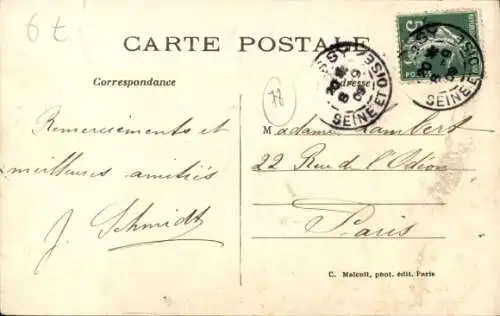 6 t
CARTE POSTALE
Correspondance
Adresse
78
5
POSTES
SEINE ET OISE
SEINE ET OISE
Remerciements et
meilleures amitiés
J. Schmidt
Madame Lambert
22 Rue de l'Odéon
Paris
C. Malcuit, phot. édit. Paris